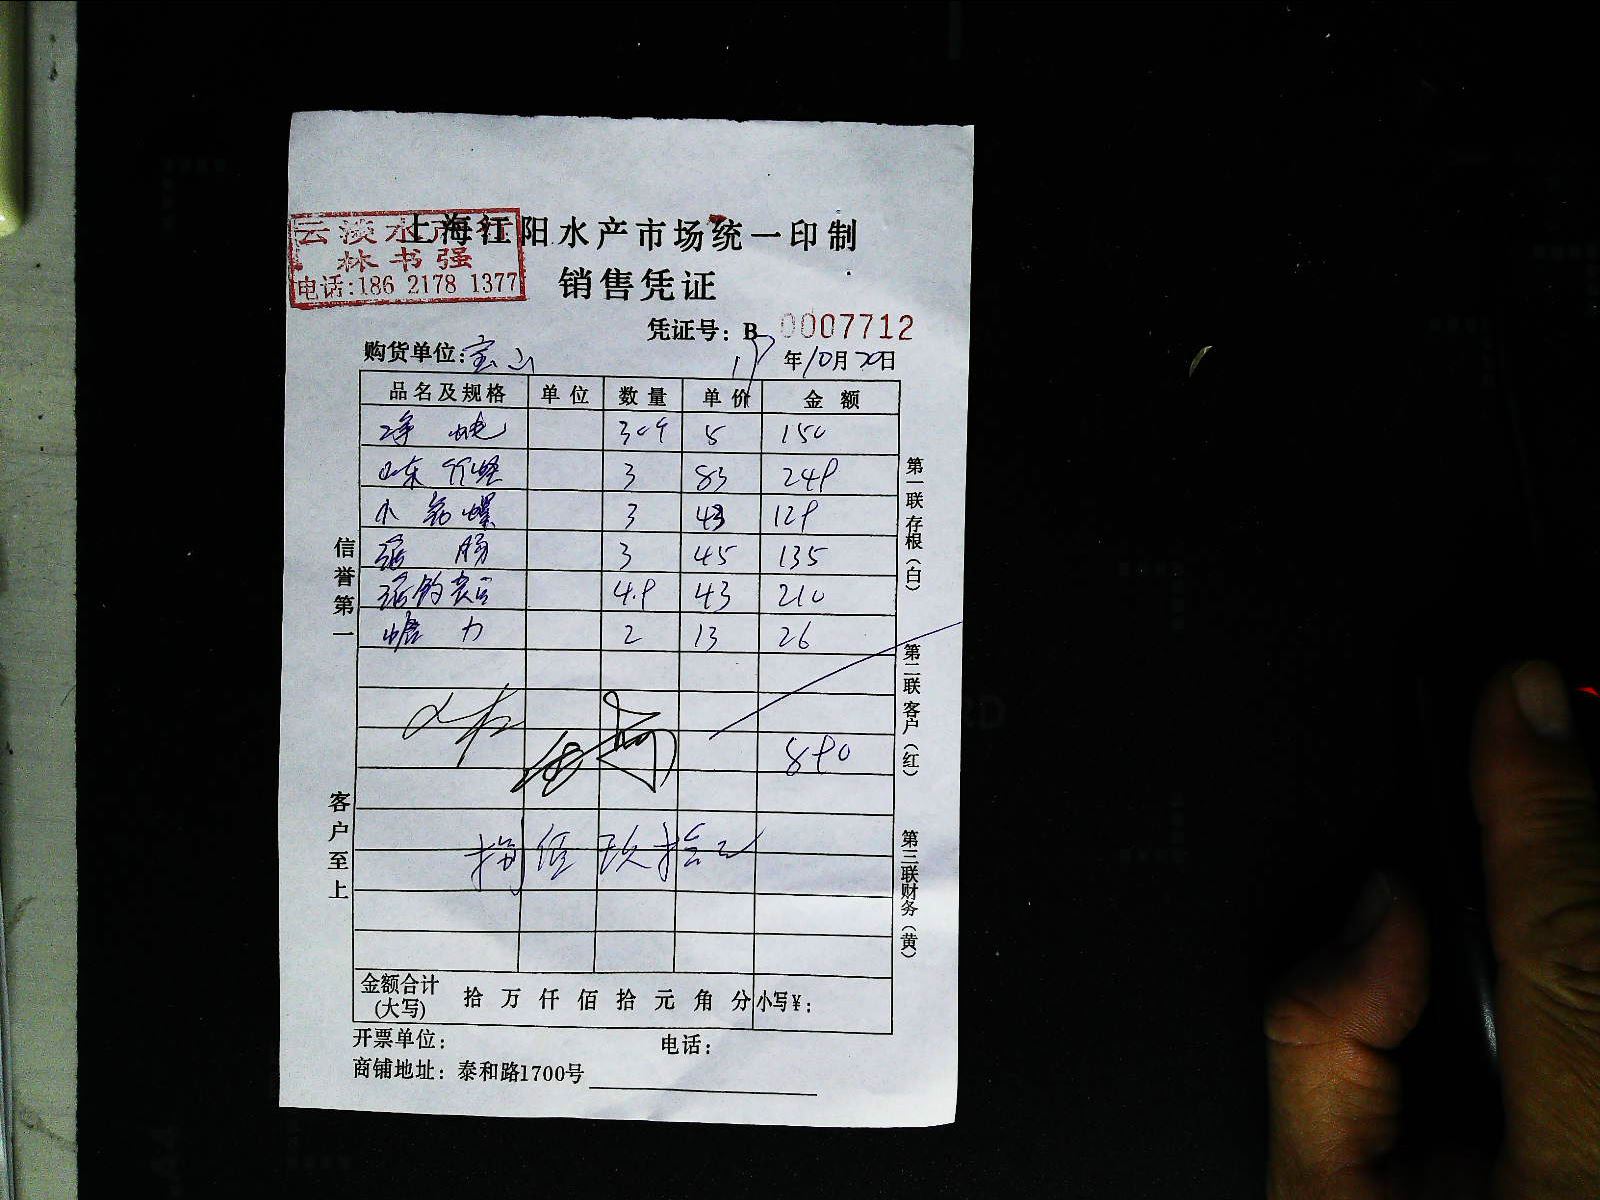 云淡水产行
林书强
电话:186 2178 1377
上海江阳水产市场统一印制
销售凭证
凭证号: B 0007712
购货单位:宝山
19年10月20日
品名及规格 单位 数量 单价 金额
净 5 150
山东 3 83 249
小 螺 3 43 129
3 45 135
4.9 43 210
2 13 26
890
捌佰玖拾元
金额合计(大写) 拾 万 仟 佰 拾 元 角 分 小写¥:
开票单位: 电话:
商铺地址: 泰和路1700号
信誉第一
客户至上
第一联存根(白)
第二联客户(红)
第三联财务(黄)